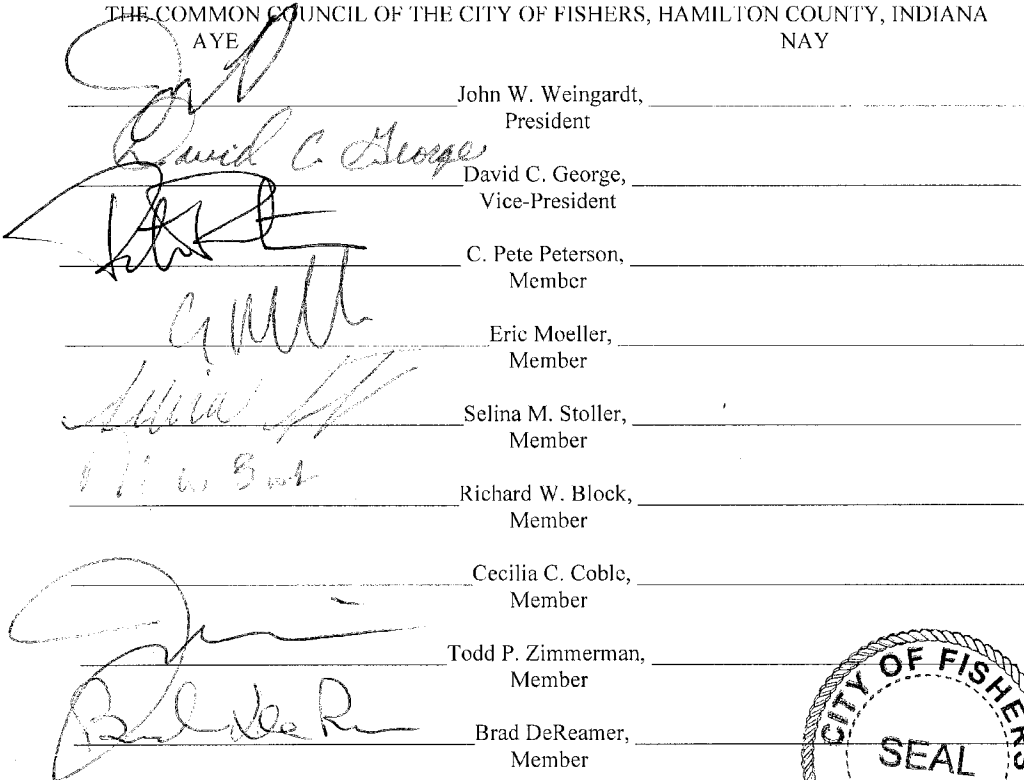 THE COMMON COUNCIL OF THE CITY OF FISHERS, HAMILTON COUNTY, INDIANA
AYE NAY
John W. Weingardt,
President
David C. George
David C. George,
Vice-President
C. Pete Peterson,
Member
Eric Moeller,
Member
Selina
Selina M. Stoller,
Member
Richard W. Block,
Member
Cecilia C. Coble,
Member
Todd P. Zimmerman,
Member
Brad DeReamer,
Member
CITY OF FISHERS
SEAL